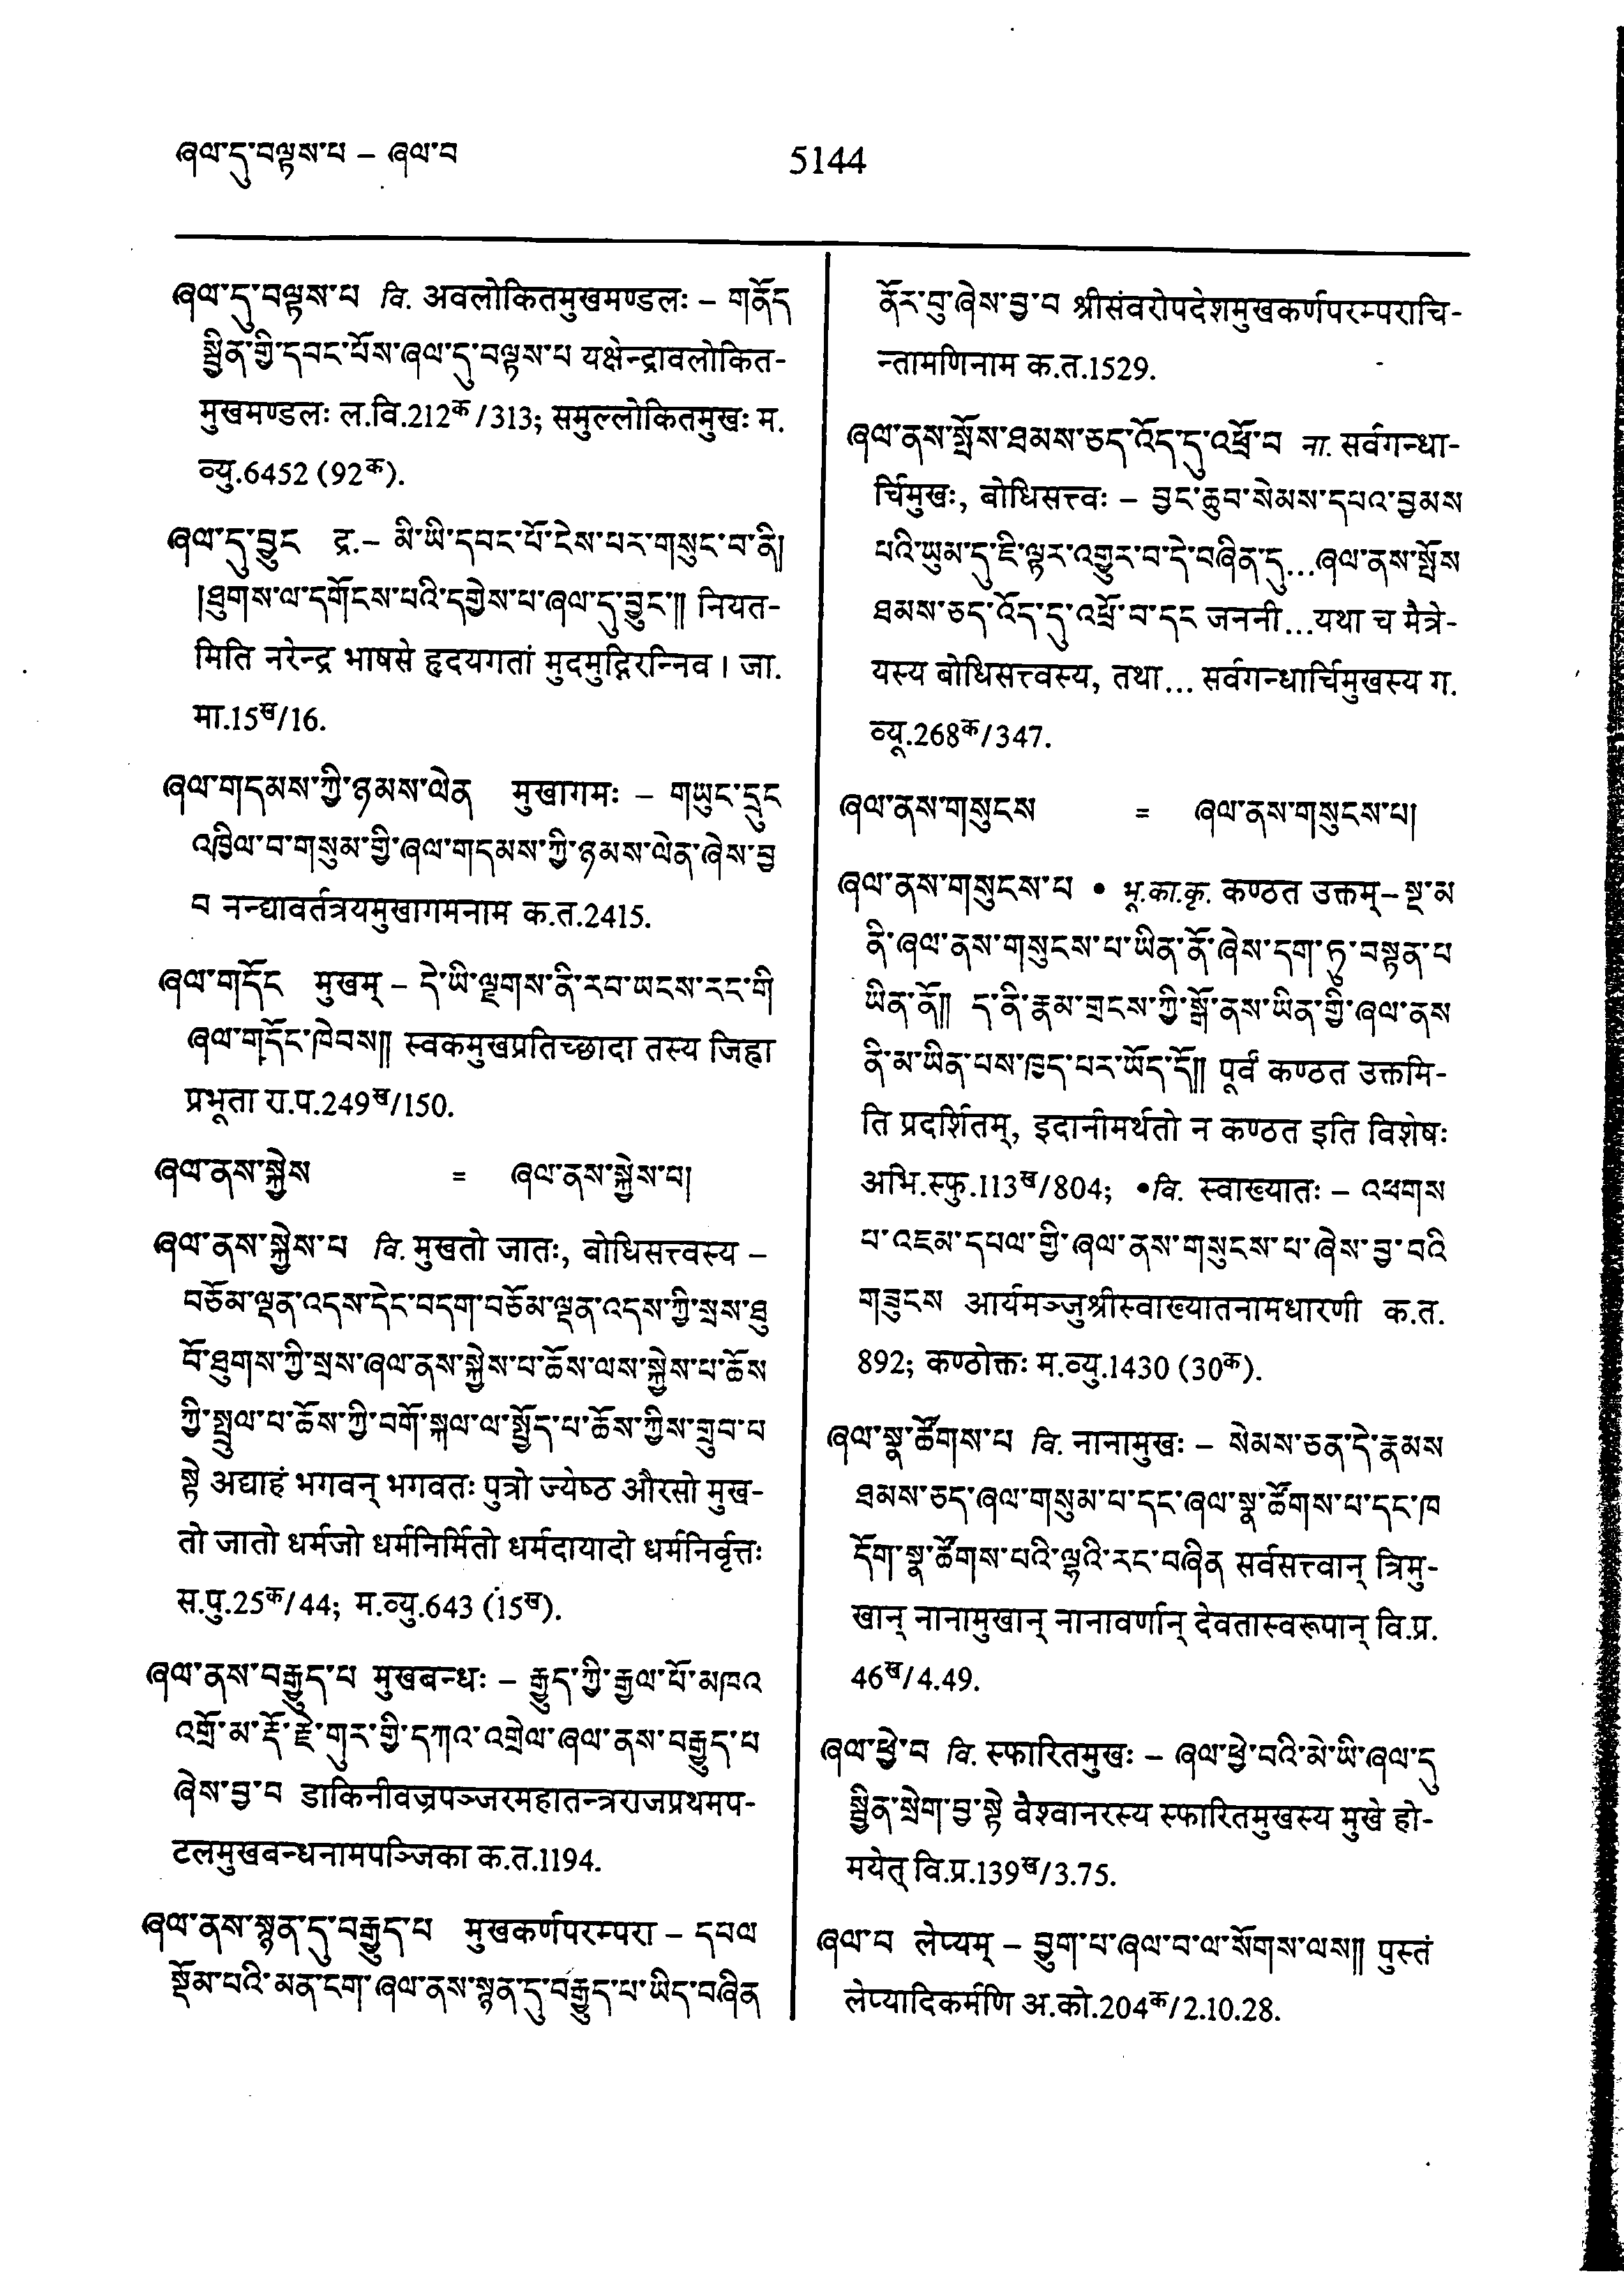 ཞལ་དུ་བལྟས་པ – ཞལ་བ
5144
ཞལ་དུ་བལྟས་པ वि. अवलोकितमुखमण्डलः – གནོད
སྦྱིན་གྱི་དབང་པོས་ཞལ་དུ་བལྟས་པ यक्षेन्द्रावलोकित-
मुखमण्डलः ल.वि.212क/313; समुल्लोकितमुखः म.
व्यु.6452 (92क).
ཞལ་དུ་བྱུང द्र.– མི་ཡི་དབང་པོ་ངེས་པར་གསུང་བ་ནི།
།ཐུགས་ལ་དགོངས་པའི་དགྱེས་པ་ཞལ་དུ་བྱུང་༎ नियत-
मिति नरेन्द्र भाषसे हृदयगतां मुदमुद्गिरन्निव । जा.
मा.15ख/16.
ཞལ་གདམས་ཀྱི་ཉམས་ལེན मुखागमः – གཡུང་དྲུང
འཁྱིལ་བ་གསུམ་གྱི་ཞལ་གདམས་ཀྱི་ཉམས་ལེན་ཞེས་བྱ
བ नन्द्यावर्तत्रयमुखागमनाम क.त.2415.
ཞལ་གདོང मुखम् – དེ་ཡི་ལྗགས་ནི་རབ་ཡངས་རང་གི
ཞལ་གདོང་ཁེབས༎ स्वकमुखप्रतिच्छादा तस्य जिह्वा
प्रभूता रा.प.249ख/150.
ཞལ་ནས་སྐྱེས = ཞལ་ནས་སྐྱེས་པ།
ཞལ་ནས་སྐྱེས་པ वि. मुखतो जातः, बोधिसत्त्वस्य –
བཅོམ་ལྡན་འདས་དེང་བདག་བཅོམ་ལྡན་འདས་ཀྱི་སྲས་ཐུ
བོ་ཐུགས་ཀྱི་སྲས་ཞལ་ནས་སྐྱེས་པ་ཆོས་ལས་སྐྱེས་པ་ཆོས
ཀྱི་སྤྲུལ་པ་ཆོས་ཀྱི་བགོ་སྐལ་ལ་སྤྱོད་པ་ཆོས་ཀྱིས་གྲུབ་པ
སྟེ अद्याहं भगवन् भगवतः पुत्रो ज्येष्ठ औरसो मुख-
तो जातो धर्मजो धर्मनिर्मितो धर्मदायादो धर्मनिर्वृत्तः
स.पु.25क/44; म.व्यु.643 (15ख).
ཞལ་ནས་བརྒྱུད་པ मुखबन्धः – རྒྱུད་ཀྱི་རྒྱལ་པོ་མཁའ
འགྲོ་མ་རྡོ་རྗེ་གུར་གྱི་དཀའ་འགྲེལ་ཞལ་ནས་བརྒྱུད་པ
ཞེས་བྱ་བ डाकिनीवज्रपञ्जरमहातन्त्रराजप्रथमप-
टलमुखबन्धनामपञ्जिका क.त.1194.
ཞལ་ནས་སྙན་དུ་བརྒྱུད་པ मुखकर्णपरम्परा – དཔལ
སྡོམ་པའི་མན་ངག་ཞལ་ནས་སྙན་དུ་བརྒྱུད་པ་ཡིད་བཞིན
ནོར་བུ་ཞེས་བྱ་བ श्रीसंवरोपदेशमुखकर्णपरम्पराचि-
न्तामणिनाम क.त.1529.
ཞལ་ནས་སྤོས་ཐམས་ཅད་འོད་དུ་འཕྲོ་བ ना. सर्वगन्धा-
र्चिमुखः, बोधिसत्त्वः – བྱང་ཆུབ་སེམས་དཔའ་བྱམས
པའི་ཡུམ་དུ་ཇི་ལྟར་འགྱུར་བ་དེ་བཞིན་དུ...ཞལ་ནས་སྤོས
ཐམས་ཅད་འོད་དུ་འཕྲོ་བ་དང जननी...यथा च मैत्रे-
यस्य बोधिसत्त्वस्य, तथा... सर्वगन्धार्चिमुखस्य ग.
व्यू.268क/347.
ཞལ་ནས་གསུངས = ཞལ་ནས་གསུངས་པ།
ཞལ་ནས་གསུངས་པ • भू.का.कृ. कण्ठत उक्तम्– སྔ་མ
ནི་ཞལ་ནས་གསུངས་པ་ཡིན་ནོ་ཞེས་དག་ཏུ་བསྟན་པ
ཡིན་ནོ༎ ད་ནི་རྣམ་གྲངས་ཀྱི་སྒོ་ནས་ཡིན་གྱི་ཞལ་ནས
ནི་མ་ཡིན་པས་ཁྱད་པར་ཡོད་དོ༎ पूर्वं कण्ठत उक्तमि-
ति प्रदर्शितम्, इदानीमर्थतो न कण्ठत इति विशेषः
अभि.स्फु.113ख/804; •वि. स्वाख्यातः – འཕགས
པ་འཇམ་དཔལ་གྱི་ཞལ་ནས་གསུངས་པ་ཞེས་བྱ་བའི
གཟུངས आर्यमञ्जुश्रीस्वाख्यातनामधारणी क.त.
892; कण्ठोक्तः म.व्यु.1430 (30क).
ཞལ་སྣ་ཚོགས་པ वि. नानामुखः – སེམས་ཅན་དེ་རྣམས
ཐམས་ཅད་ཞལ་གསུམ་པ་དང་ཞལ་སྣ་ཚོགས་པ་དང་ཁ
དོག་སྣ་ཚོགས་པའི་ལྷའི་རང་བཞིན सर्वसत्त्वान् त्रिमु-
खान् नानामुखान् नानावर्णान् देवतास्वरूपान् वि.प्र.
46ख/4.49.
ཞལ་ཕྱེ་བ वि. स्फारितमुखः – ཞལ་ཕྱེ་བའི་མེ་ཡི་ཞལ་དུ
སྦྱིན་སྲེག་བྱ་སྟེ वैश्वानरस्य स्फारितमुखस्य मुखे हो-
मयेत् वि.प्र.139ख/3.75.
ཞལ་བ लेप्यम् – བྱུག་པ་ཞལ་བ་ལ་སོགས་ལས༎ पुस्तं
लेप्यादिकर्मणि अ.को.204क/2.10.28.